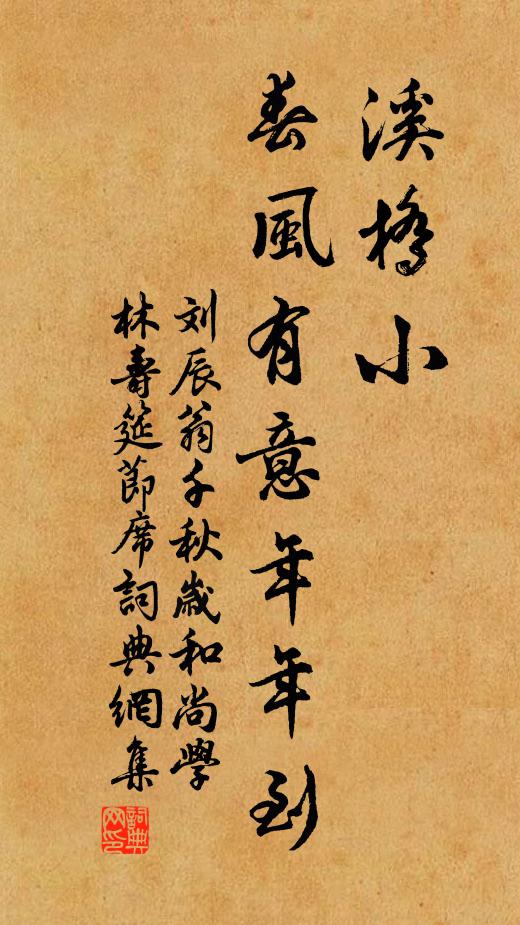 溪橋小
春風有意年年到
刘辰翁千秋歲和尚學
林壽筵節席詞典網集
詞典
网印